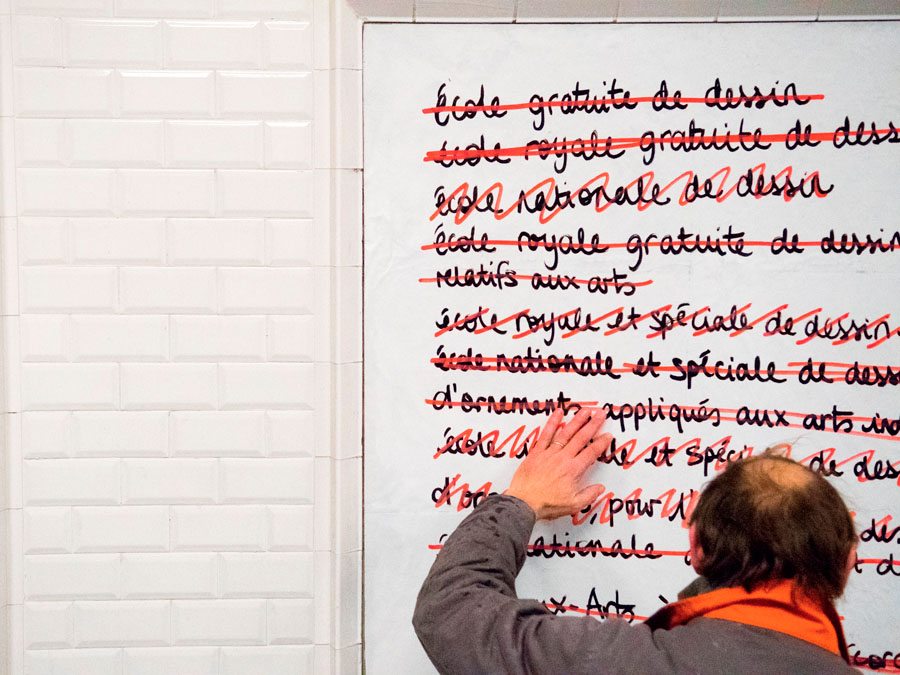 École gratuite de dessin
école royale gratuite de dess
école nationale de dessin
école royale gratuite de dessin
relatifs aux arts
école royale et spéciale de dessin
école nationale et spéciale de dess
d'ornements appliqués aux arts ind
école le et spéci de des
d'or , pour l' des
nationale t d
ux-Arts à
cor